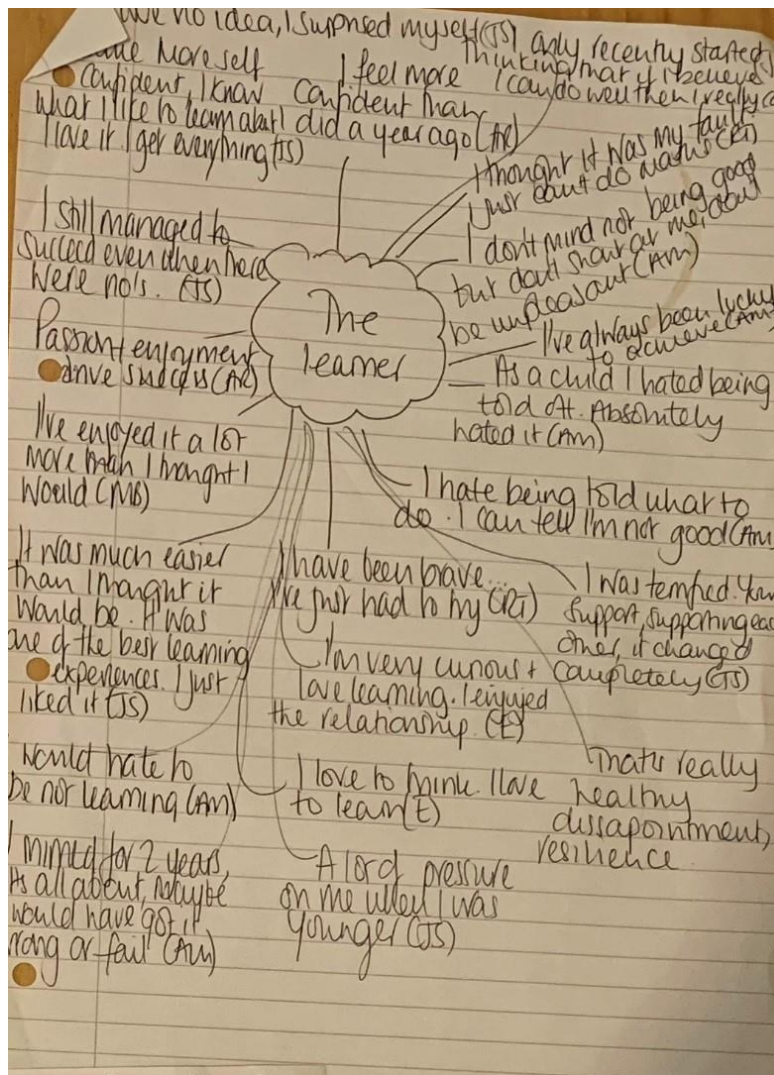 I've no idea, I surprised myself (JS)
only recently started
thinking that if I believe
I can do well then I really ca
more self
confident, I know
what I like to learn about
I love it I get everything (JS)
I feel more
confident than
I did a year ago (AR)
I thought it was my fault
I just can't do maths (RT)
I don't mind not being good
but don't shout at me, dont
be unpleasant (AM)
I still managed to
succeed even when there
were no's. (JS)
The
learner
I've always been lucky
to achieve (AM
Passion + enjoyment
drive success (AR)
As a child I hated being
told off. Absolutely
hated it (AM)
I've enjoyed it a lot
more than I thought I
would (MB)
I hate being told what to
do. I can tell I'm not good (AM
It was much easier
than I thought it
would be. It was
one of the best learning
experiences. I just
liked it (JS)
I have been brave...
I've just had to try (RT)
I was terrified. Your
support, supporting eac
other, it changed
completely (JS)
I'm very curious +
love learning. I enjoyed
the relationship. (E)
would hate to
be not learning (AM)
I love to think. I love
to learn (E)
That's really
healthy
dissapointment,
resilience
I mimed for 2 years,
its all about, maybe
would have got it
wrong or fail (AM)
A lot of pressure
on me when I was
younger (JS)